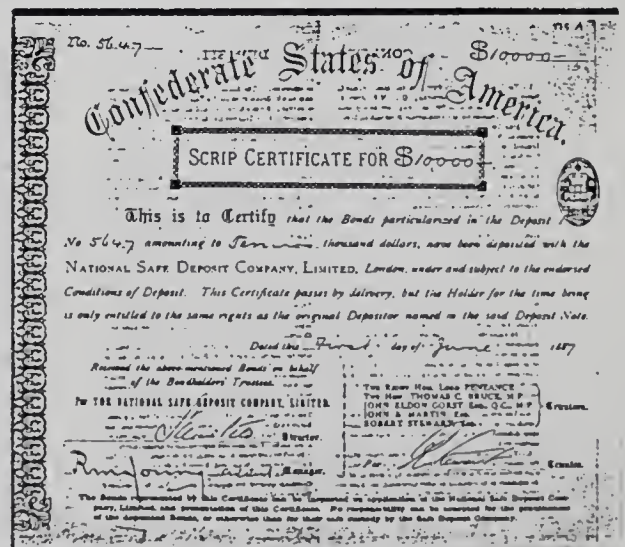 No. 5647
$10000
Confederate States of America.
SCRIP CERTIFICATE FOR $10000
This is to Certify that the Bonds particularized in the Deposit
No 5647 amounting to Ten thousand dollars, have been deposited with the
NATIONAL SAFE DEPOSIT COMPANY, LIMITED, London, under and subject to the endorsed
Conditions of Deposit. This Certificate passes by delivery, but the Holder for the time being
is only entitled to the same rights as the original Depositor named in the said Deposit Note.
Dated this First day of June 1887
Received the above-mentioned Bonds on behalf
of the Bondholders' Trustees.
For THE NATIONAL SAFE DEPOSIT COMPANY, LIMITED.
Director.
Manager.
THE RIGHT HON. LORD PENZANCE
THE HON. THOMAS C. BRUCE, M.P.
JOHN ELDON GORST Esq. Q.C., M.P.
JOHN S. MARTIN Esq.
ROBERT STEWART Esq.
Trustees.
For
Trustees.
The Bonds represented by this Certificate can be inspected on application at the National Safe Deposit Com-
pany, Limited, and presentation of this Certificate. No responsibility can be accepted for the genuineness
of the deposited Bonds, or otherwise than for their safe custody by the Safe Deposit Company.